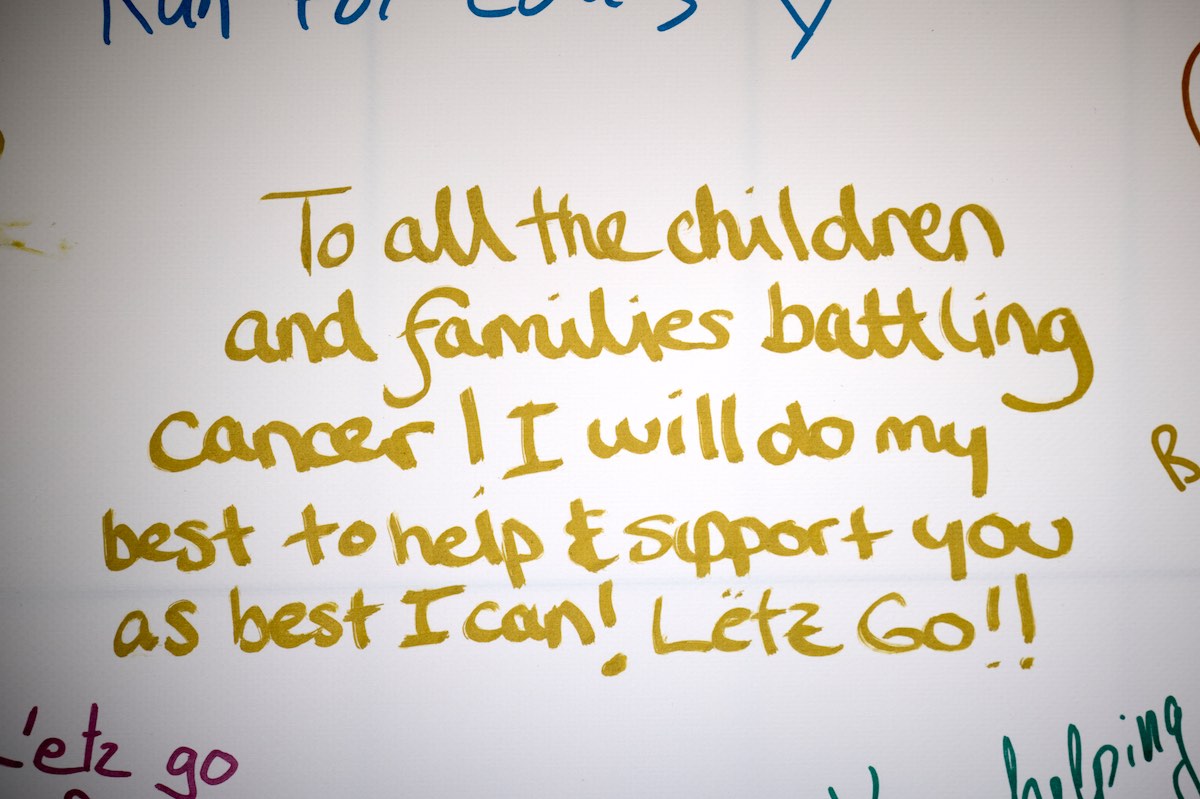 Run for
To all the children
and families battling
cancer! I will do my
best to help & support you
as best I can! Lëtz Go!!
L'etz go
helping